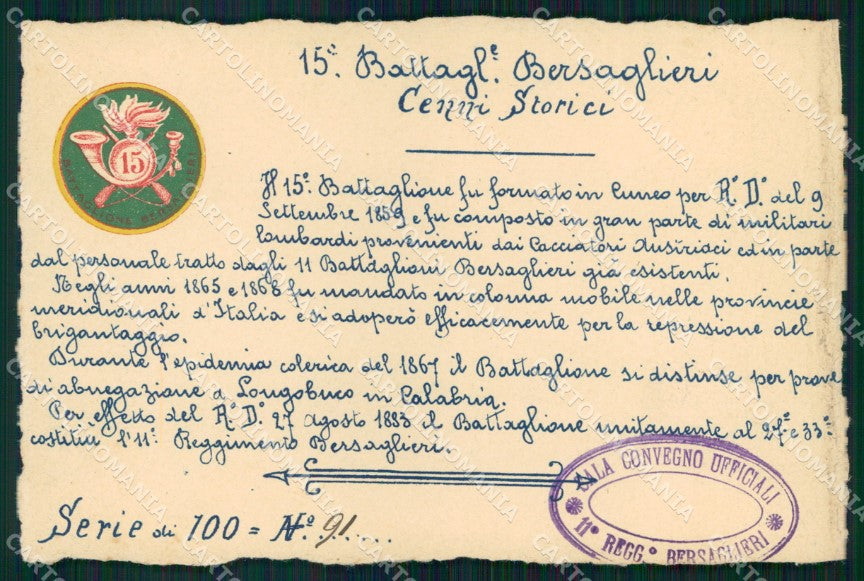 15º. Battagl.e Bersaglieri
Cenni Storici
15
BATTAGLIONE BERSAGLIERI
Il 15º. Battaglione fu formato in Cuneo per R.º D.º del 9
Settembre 1859 e fu composto in gran parte di militari
lombardi provenienti dai Cacciatori Austriaci ed in parte
dal personale tratto dagli 11 Battaglioni Bersaglieri già esistenti.
Negli anni 1865 e 1868 fu mandato in colonna mobile nelle provincie
meridionali d'Italia e si adoperò efficacemente per la repressione del
brigantaggio.
Durante l'epidemia colerica del 1867 il Battaglione si distinse per prove
di abnegazione a Longobuco in Calabria.
Per effetto del R.º D.º 27 agosto 1883 il Battaglione unitamente al 27º e 33º
costituì l'11º. Reggimento Bersaglieri.
Serie di 100 = Nº. 91....
SALA CONVEGNO UFFICIALI
11º REGGº BERSAGLIERI
CARTOLINOMANIA